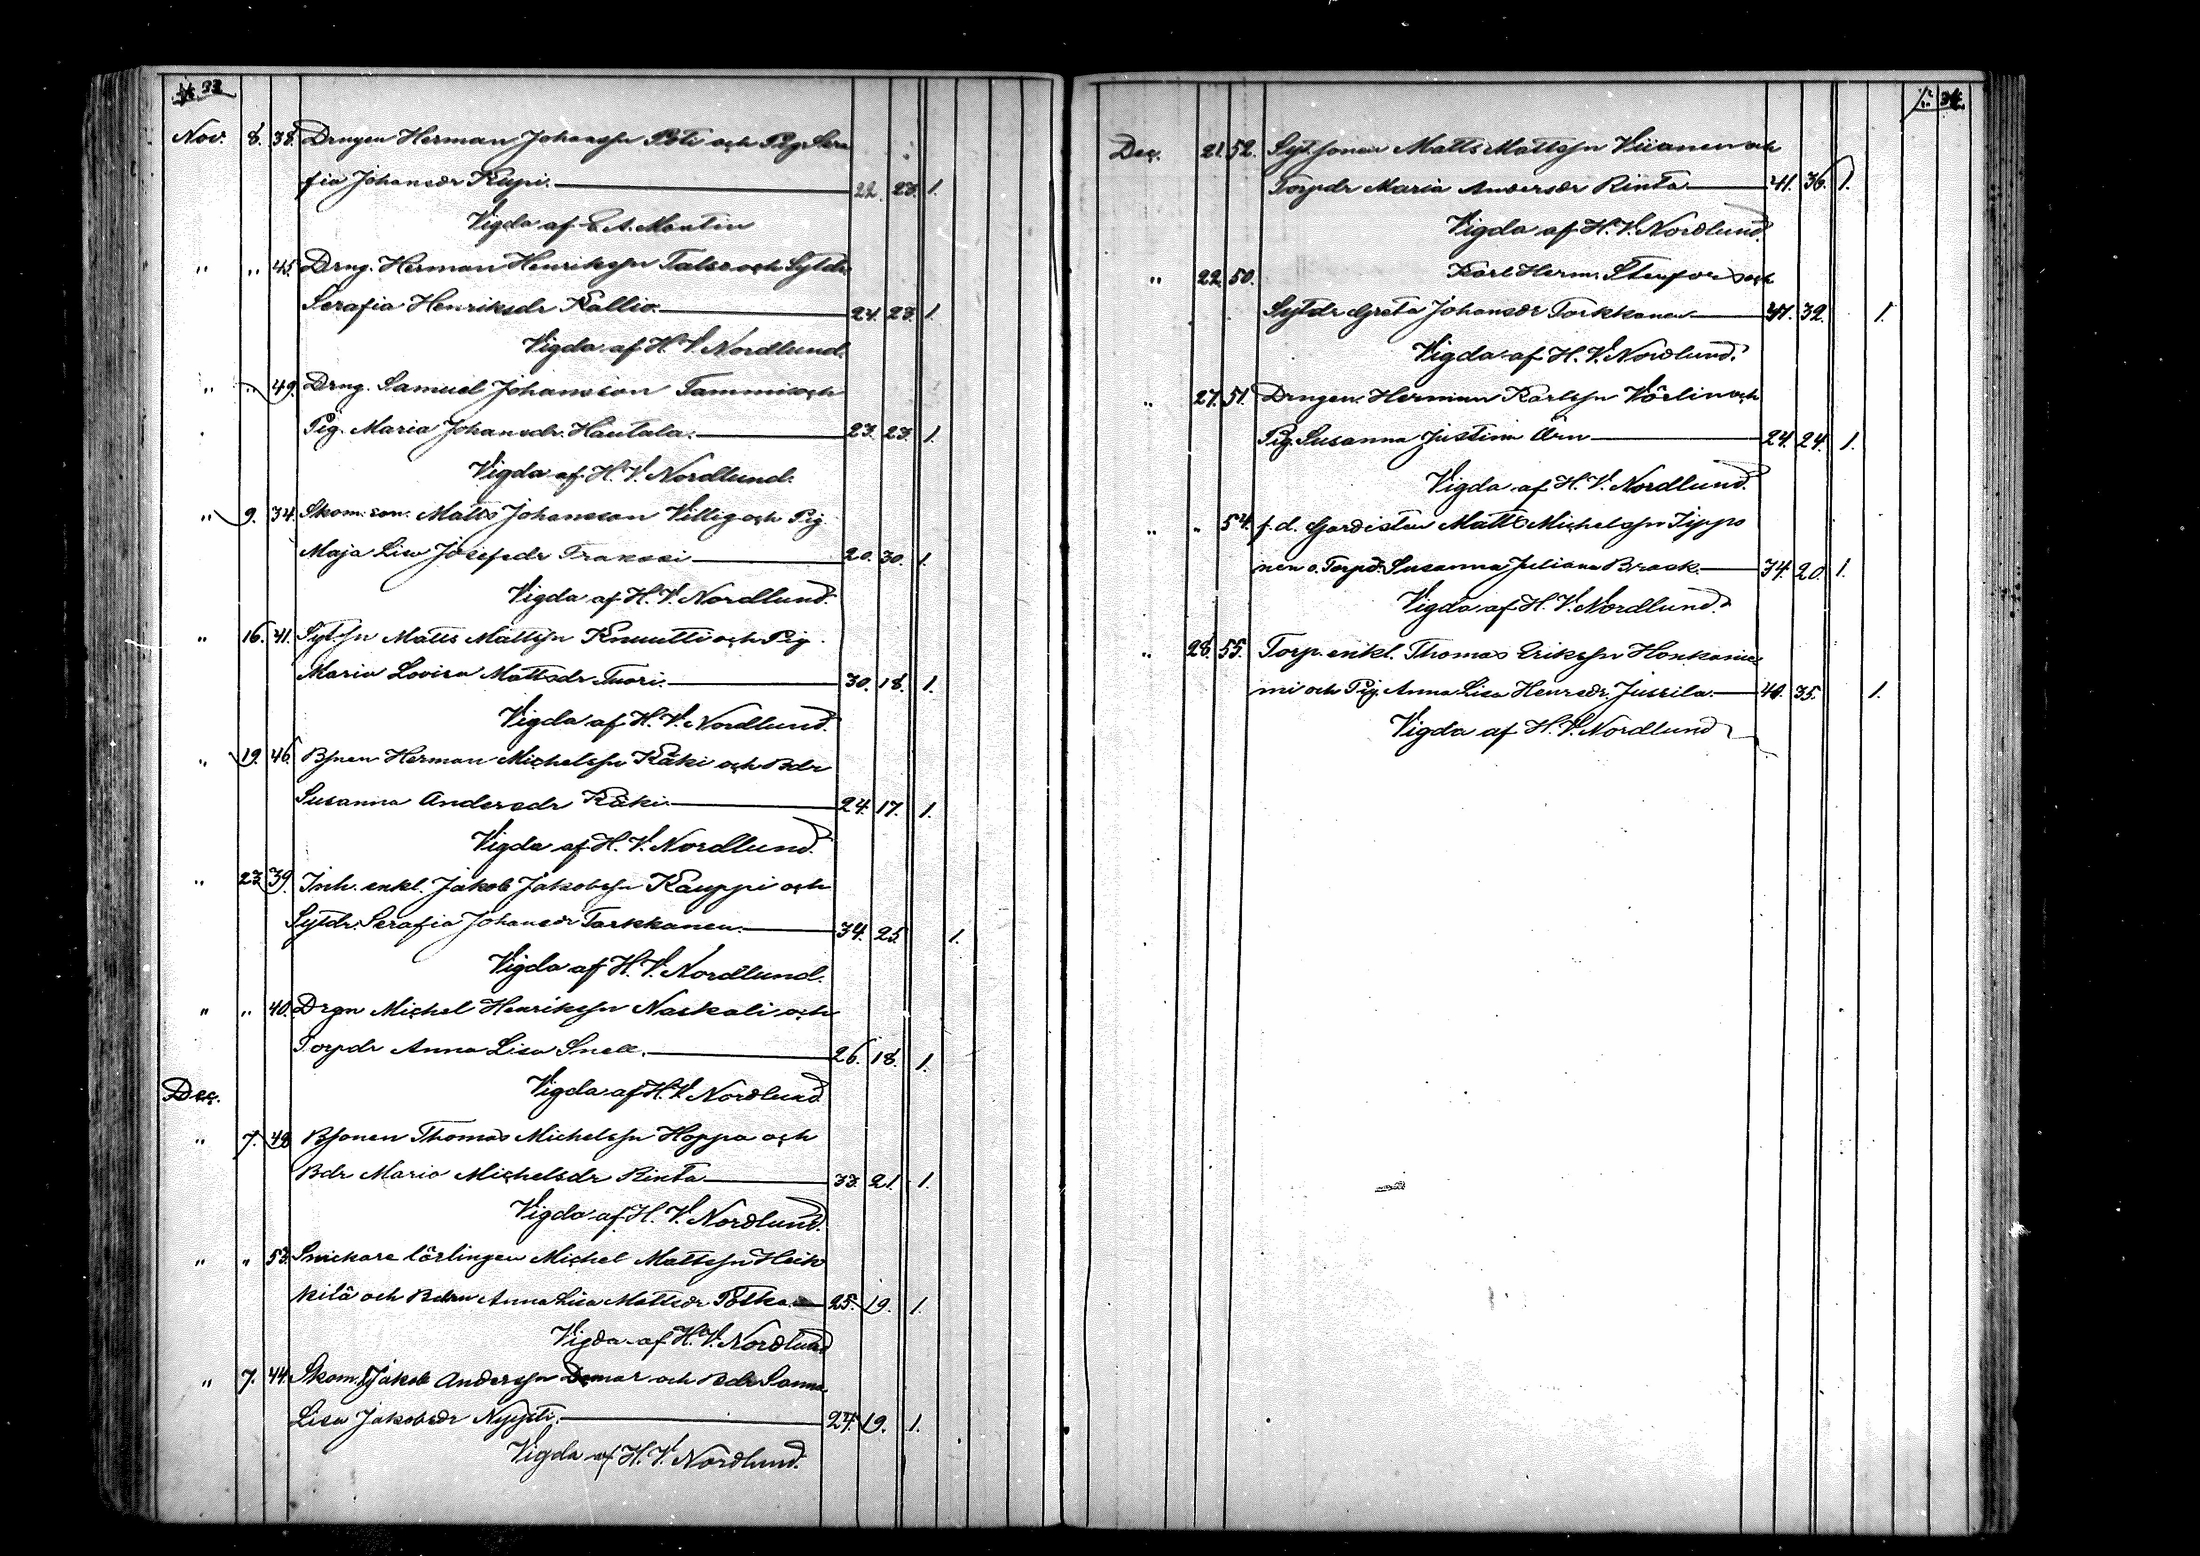 Nov. 8. 38. Drngen Herman Johansson Poti och Pig. Sera
fia Johansdr Kupi. 22. 23. 1.
Vigda af
" " 45. Drng. Herman Henrikssn och Sytdr
Serafia Henriksdr Kallio. 24. 23. 1.
Vigda af H. V. Nordlund.
" " 49. Drng. Samuel Johansson Tammi och
Pig. Maria Johansdr. Hautala. 23. 23. 1.
Vigda af H. V. Nordlund.
" 9. 34. Skom. son. Matts Johansson Villig och Pig.
Maja Lisa Josefsdr 20. 30. 1.
Vigda af H. V. Nordlund.
" 16. 41. Sytsn Matts Mattssn Knuutti och Pig.
Maria Lovisa Mattsdr Tuori. 30. 18. 1.
Vigda af H. V. Nordlund.
" 19. 46. Bsnen Herman Michelssn Käki och Bdr
Susanna Andersdr Käki. 24. 17. 1.
Vigda af H. V. Nordlund.
" 23. 39. Inh. enkl. Jakob Jakobssn Kauppi och
Sytdr. Serafia Johansdr Tarkkanen. 34. 25. 1.
Vigda af H. V. Nordlund.
" " 40. Drgn Michel Henrikssn Naskali och
Torpdr Anna Lisa Snell. 26. 18. 1.
Vigda af H. V. Nordlund
Dec.
" 7. 48. Bsonen Thomas Michelssn Hoppa och
Bdr Maria Michelsdr Rinta 33. 21. 1.
Vigda af H. V. Nordlund.
" " 53. Snickare lärlingen Michel Mattssn Heik
kilä och Bdrn Anna Lisa Mattsdr 25. 19. 1.
Vigda af H. V. Nordlund
" 7. 44. Skom. Jakob Anderssn och Bdr Sanna
Lisa Jakobsdr 24. 19. 1.
Vigda af H. V. Nordlund.
Dec. 21. 52. Sytsonen Matts Mattssn Viianen och
Torpdr Maria Andersdr Rinta 41. 36. 1.
Vigda af H. V. Nordlund.
" 22. 50. Karl Herm. och
Sytdr Greta Johansdr Torkkanen 32. 1.
Vigda af H. V. Nordlund.
" 27. 51. Drngen Herman Karlssn Vörlin och
Pig. Susanna Justina Örn 24. 24. 1.
Vigda af H. V. Nordlund.
" " 54. f. d. Gardisten Matts Michelssn Sippo
nen o. Torpd. Susanna Juliana Brask. 34. 20. 1.
Vigda af H. V. Nordlund.
" 28. 55. Torp. enkl. Thomas Erikssn Honkanie
mi och Pig. Anna Lisa Henrsdr. Jussila. 35. 1.
Vigda af H. V. Nordlund